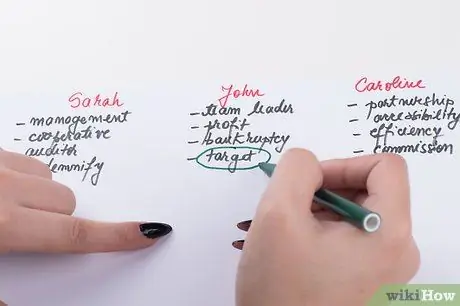 Sarah
- management
- cooperative
auditor
demnify
John
- team leader
- profit
- bankruptcy
- target
Caroline
- partnership
- accessibility
- efficiency
- commission
wikiHow